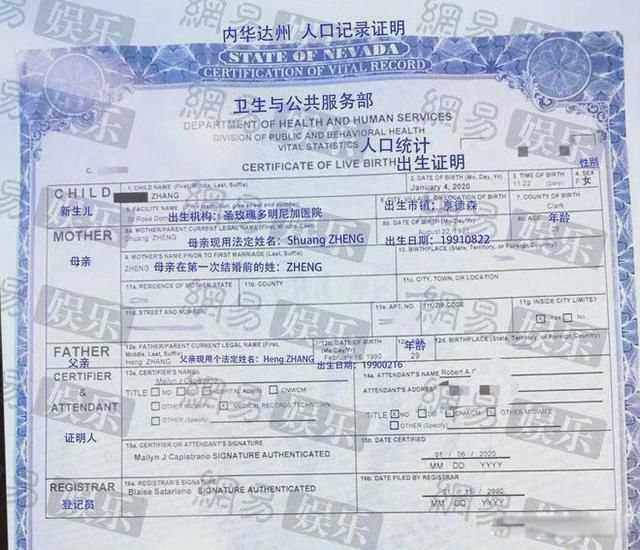 内华达州 人口记录证明
STATE OF NEVADA
CERTIFICATION OF VITAL RECORD
卫生与公共服务部
DEPARTMENT OF HEALTH AND HUMAN SERVICES
DIVISION OF PUBLIC AND BEHAVIORAL HEALTH
VITAL STATISTICS 人口统计
CERTIFICATE OF LIVE BIRTH 出生证明
CHILD
新生儿
1. CHILD NAME (First, Middle, Last, Suffix)
ZHANG
2. DATE OF BIRTH (Mo, Day, Yr)
January 4, 2020
3. TIME OF BIRTH
11:22
4. SEX 性别
F 女
5. FACILITY NAME
St Rose Dom
出生机构：圣玫瑰多明尼加医院
LOCATION OF BIRTH
出生市镇：亨德森
7. COUNTY OF BIRTH
Clark
MOTHER
母亲
8a. MOTHER/PARENT CURRENT LEGAL NAME (First, Middle, Last, Suffix)
Shuang ZHENG
母亲现用法定姓名：Shuang ZHENG
August 22, 1991
出生日期：19910822
AGE 年龄
28
9. MOTHER'S NAME PRIOR TO FIRST MARRIAGE (Last, Suffix)
ZHENG 母亲在第一次结婚前的姓：ZHENG
10. BIRTHPLACE (State, Territory, or Foreign Country)
11a. RESIDENCE OF MOTHER STATE
11b. COUNTY
11c. CITY, TOWN, OR LOCATION
11d. STREET AND NUMBER
11e. APT. NO.
11f. ZIP CODE
11g. INSIDE CITY LIMITS?
Yes No
FATHER
父亲
12a. FATHER/PARENT CURRENT LEGAL NAME (First, Middle, Last, Suffix)
Heng ZHANG
父亲现用个法定姓名：Heng ZHANG
12b. DATE OF BIRTH (Mo/Day/Yr)
February 16, 1990
出生日期：19900216
年龄
29
12d. BIRTHPLACE (State, Territory, or Foreign Country)
CERTIFIER
&
ATTENDANT
证明人
13a. CERTIFIER'S NAME
Mailyn J Capistrano
TITLE MD DO HOSPITAL ADMIN CNM/CM
OTHER MIDWIFE MEDICAL RECORDS TECHNICIAN
OTHER (Specify)
14a. ATTENDANT'S NAME Robert A
ATTENDANT'S ADDRESS
TITLE MD DO CNM/CM OTHER MIDWIFE
OTHER (Specify)
15a. CERTIFIER OR ATTENDANT'S SIGNATURE
Mailyn J Capistrano SIGNATURE AUTHENTICATED
15b. DATE CERTIFIED
01 / 06 / 2020
MM DD YYYY
REGISTRAR
登记员
16a. REGISTRAR'S SIGNATURE
Blaise Satariano SIGNATURE AUTHENTICATED
16b. DATE FILED BY REGISTRAR
01 / 15 / 2020
MM DD YYYY
網易 娱乐